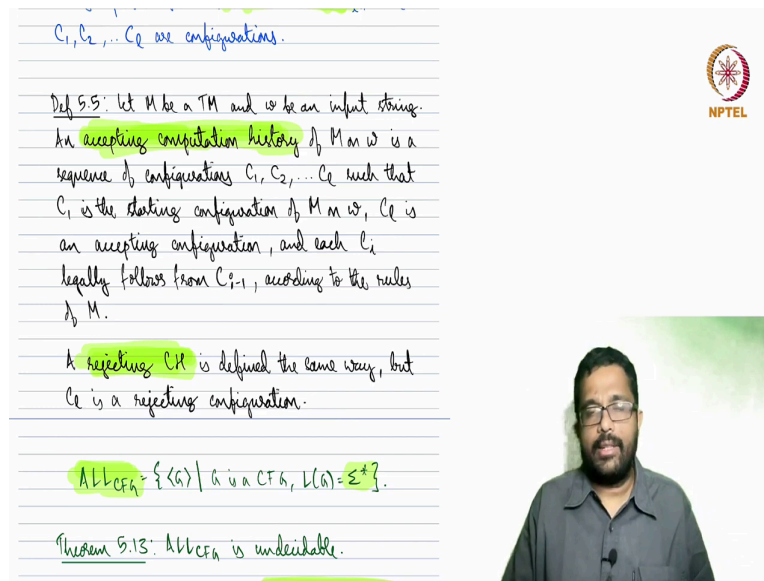 C₁, C₂, ... Cℓ are configurations.
Def 5.5: Let M be a TM and w be an input string.
An accepting computation history of M on w is a
sequence of configurations C₁, C₂, ... Cℓ such that
C₁ is the starting configuration of M on w, Cℓ is
an accepting configuration, and each Cᵢ
legally follows from Cᵢ₋₁, according to the rules
of M.
A rejecting CH is defined the same way, but
Cℓ is a rejecting configuration.
ALL_CFG = {⟨G⟩ | G is a CFG, L(G) = Σ*}.
Theorem 5.13: ALL_CFG is undecidable.
NPTEL